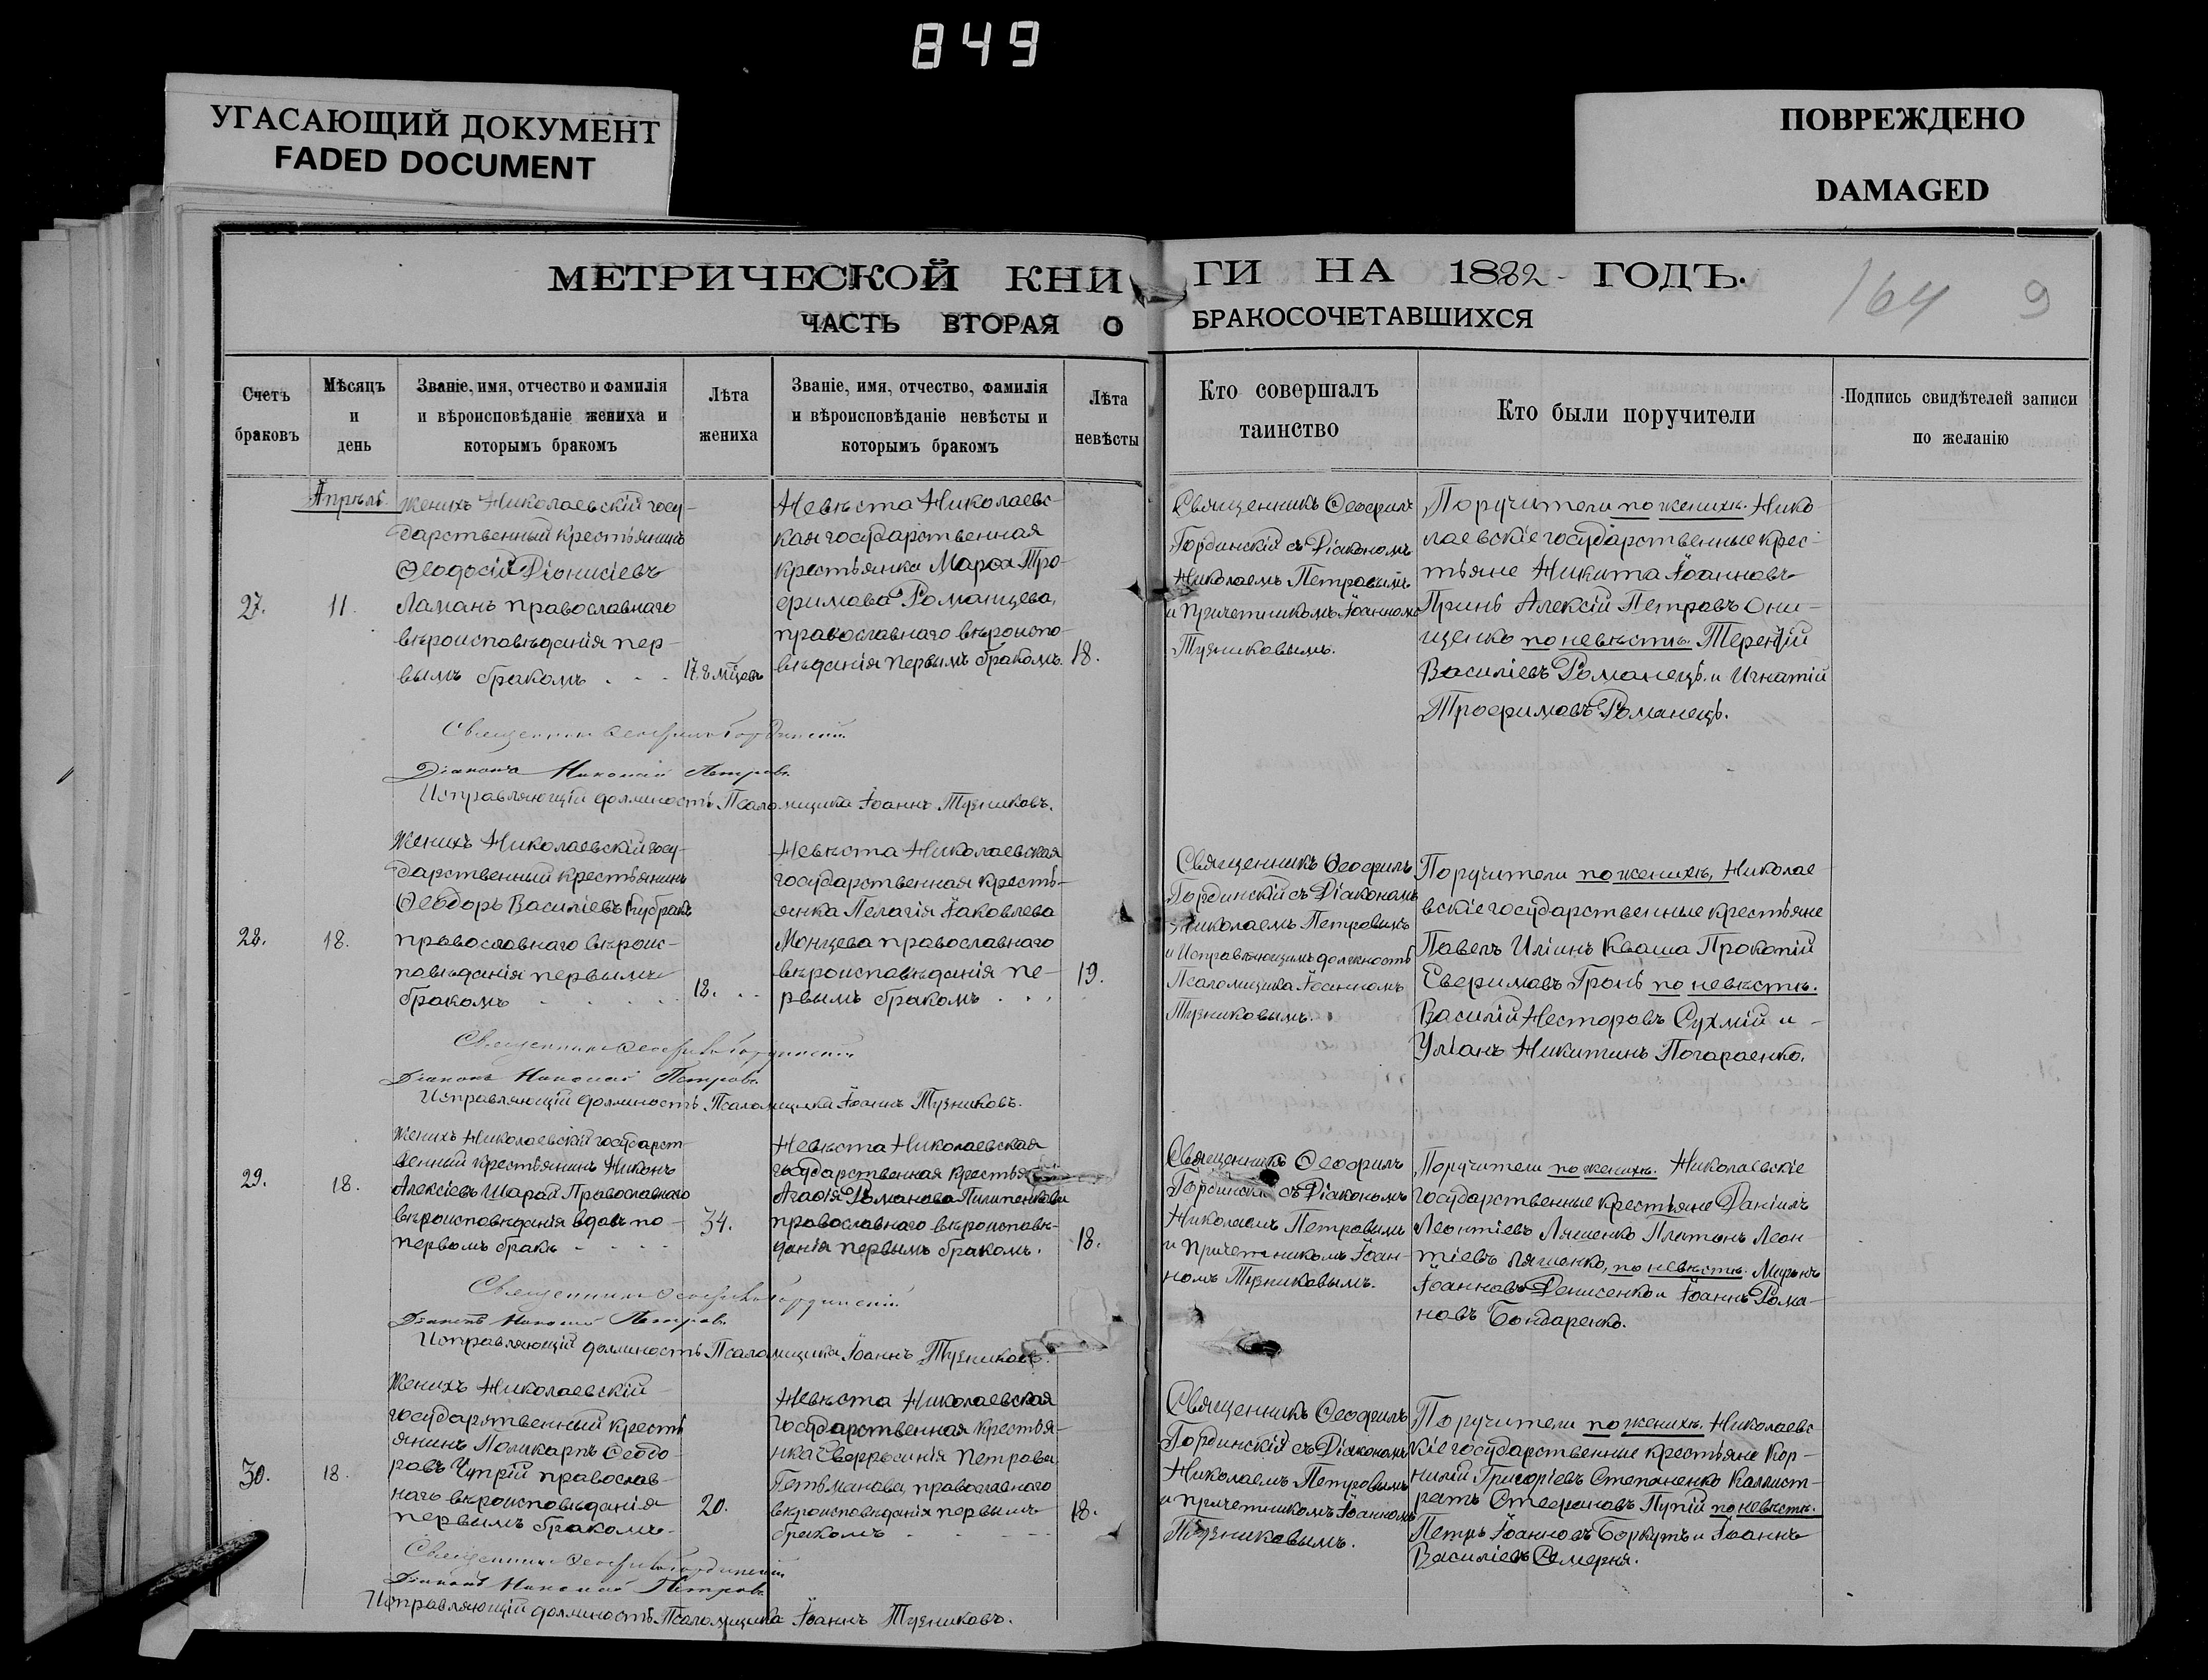 849
УГАСАЮЩИЙ ДОКУМЕНТ
FADED DOCUMENT
ПОВРЕЖДЕНО
DAMAGED
МЕТРИЧЕСКОЙ КНИ
ГИ НА 1882 ГОДЪ.
164 9
ЧАСТЬ ВТОРАЯ О
БРАКОСОЧЕТАВШИХСЯ
Счетъ
браковъ
Мѣсяцъ
и
день
Званіе, имя, отчество и фамилія
и вѣроисповѣданіе жениха и
которымъ бракомъ
Лѣта
жениха
Званіе, имя, отчество, фамилія
и вѣроисповѣданіе невѣсты и
которымъ бракомъ
Лѣта
невѣсты
Кто совершалъ
таинство
Кто были поручители
Подпись свидѣтелей записи
по желанію
Апрѣль
27.
11.
Женихъ Николаевскій госу-
дарственный крестьянинъ
Ѳеодосій Діонисіевъ
Ламанъ православнаго
вѣроисповѣданія пер-
вымъ бракомъ . - -
17. 8 мцевъ
Невѣста Николаевс-
кая государственная
крестьянка Марѳа Тро-
фимова Романцева,
православнаго вѣроиспо-
вѣданія первымъ бракомъ.
18.
Священникъ Ѳеофилъ
Гординскій съ Діакономъ
Николаемъ Петровымъ
и Причетникомъ Іоанномъ
Тузниковымъ.
Поручители по женихѣ. Нико-
лаевскіе государственные крес-
тьяне Никита Іоанновъ
Принь Алексій Петровъ Они-
щенко по невѣстѣ. Терентій
Василіевъ Романецъ. и Игнатій
Трофимовъ Романецъ.
Священникъ Ѳеофилъ Гординскій
Діаконъ Николай Петровъ
Исправляющій должность Псаломщика Іоаннъ Тузниковъ.
28.
18.
Женихъ Николаевскій госу-
дарственный крестьянинъ
Ѳеодоръ Василіевъ Кубракъ
православнаго вѣроис-
повѣданія первымъ
бракомъ . . . . .
18. . .
Невѣста Николаевская
государственная кресть-
янка Пелагія Іаковлева
Монцева православнаго
вѣроисповѣданія пе-
рвымъ бракомъ . . .
19.
Священникъ Ѳеофилъ
Гординскій съ Діакономъ
Николаемъ Петровымъ
и Исправляющимъ должность
Псаломщика Іоанномъ
Тузниковымъ.
Поручители по женихѣ, Николае
вскіе государственные крестьяне
Павелъ Иліинъ Кваша Прокопій
Евфимовъ Гронь по невѣстѣ.
Василій Несторовъ Сухмій и -
Уліанъ Никитинъ
Священникъ Ѳеофилъ Гординскій
Діаконъ Николай Петровъ
Исправляющій должность Псаломщика Іоаннъ Тузниковъ.
29.
18.
Женихъ Николаевскій государст-
венный крестьянинъ Никонъ
Алексіевъ Шарай Православнаго
вѣроисповѣданія вдовъ по
первомъ бракѣ - - - -
34.
Невѣста Николаевская
государственная крестья
Агаѳія Романова Пилипенкова
православнаго вѣроисповѣ-
данія первымъ бракомъ.
18.
Священникъ Ѳеофилъ
Гординскій съ Діакономъ
Николаемъ Петровымъ
и Причетникомъ Іоан-
номъ Тузниковымъ.
Поручители по женихѣ. Николаевскіе
государственные крестьяне Даніилъ
Леонтіевъ Ляшенко Платонъ Леон-
тіевъ Ляшенко, по невѣстѣ. Миронъ
Іоанновъ Денисенко и Іоаннъ Рома-
новъ Бондаренко.
Священникъ Ѳеофилъ Гординскій
Діаконъ Николай Петровъ
Исправляющій должность Псаломщика Іоаннъ Тузниковъ.
30.
18.
Женихъ Николаевскій
государственный кресть
янинъ Поликарпъ Ѳеодо-
ровъ Чупрій православ-
наго вѣроисповѣданія
первымъ бракомъ-
20.
Невѣста Николаевская
государственная крестья-
нка Евфросинія Петрова
Гетьманова, православнаго
вѣроисповѣданія первымъ
бракомъ - - - -
18.
Священникъ Ѳеофилъ
Гординскій съ Діакономъ
Николаемъ Петровымъ
и причетникомъ Іоанномъ
Тузниковымъ.
Поручители по женихѣ. Николаевс-
кіе государственные крестьяне Кор-
нилій Григоріевъ Степаненко Каллист-
ратъ Стефановъ Пугій по невѣстѣ.
Петръ Іоанновъ Боркутъ и Іоаннъ
Василіевъ
Священникъ Ѳеофилъ Гординскій
Діаконъ Николай Петровъ
Исправляющій должность Псаломщика Іоаннъ Тузниковъ.